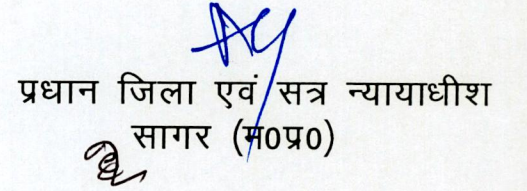 प्रधान जिला एवं सत्र न्यायाधीश
सागर (म0प्र0)